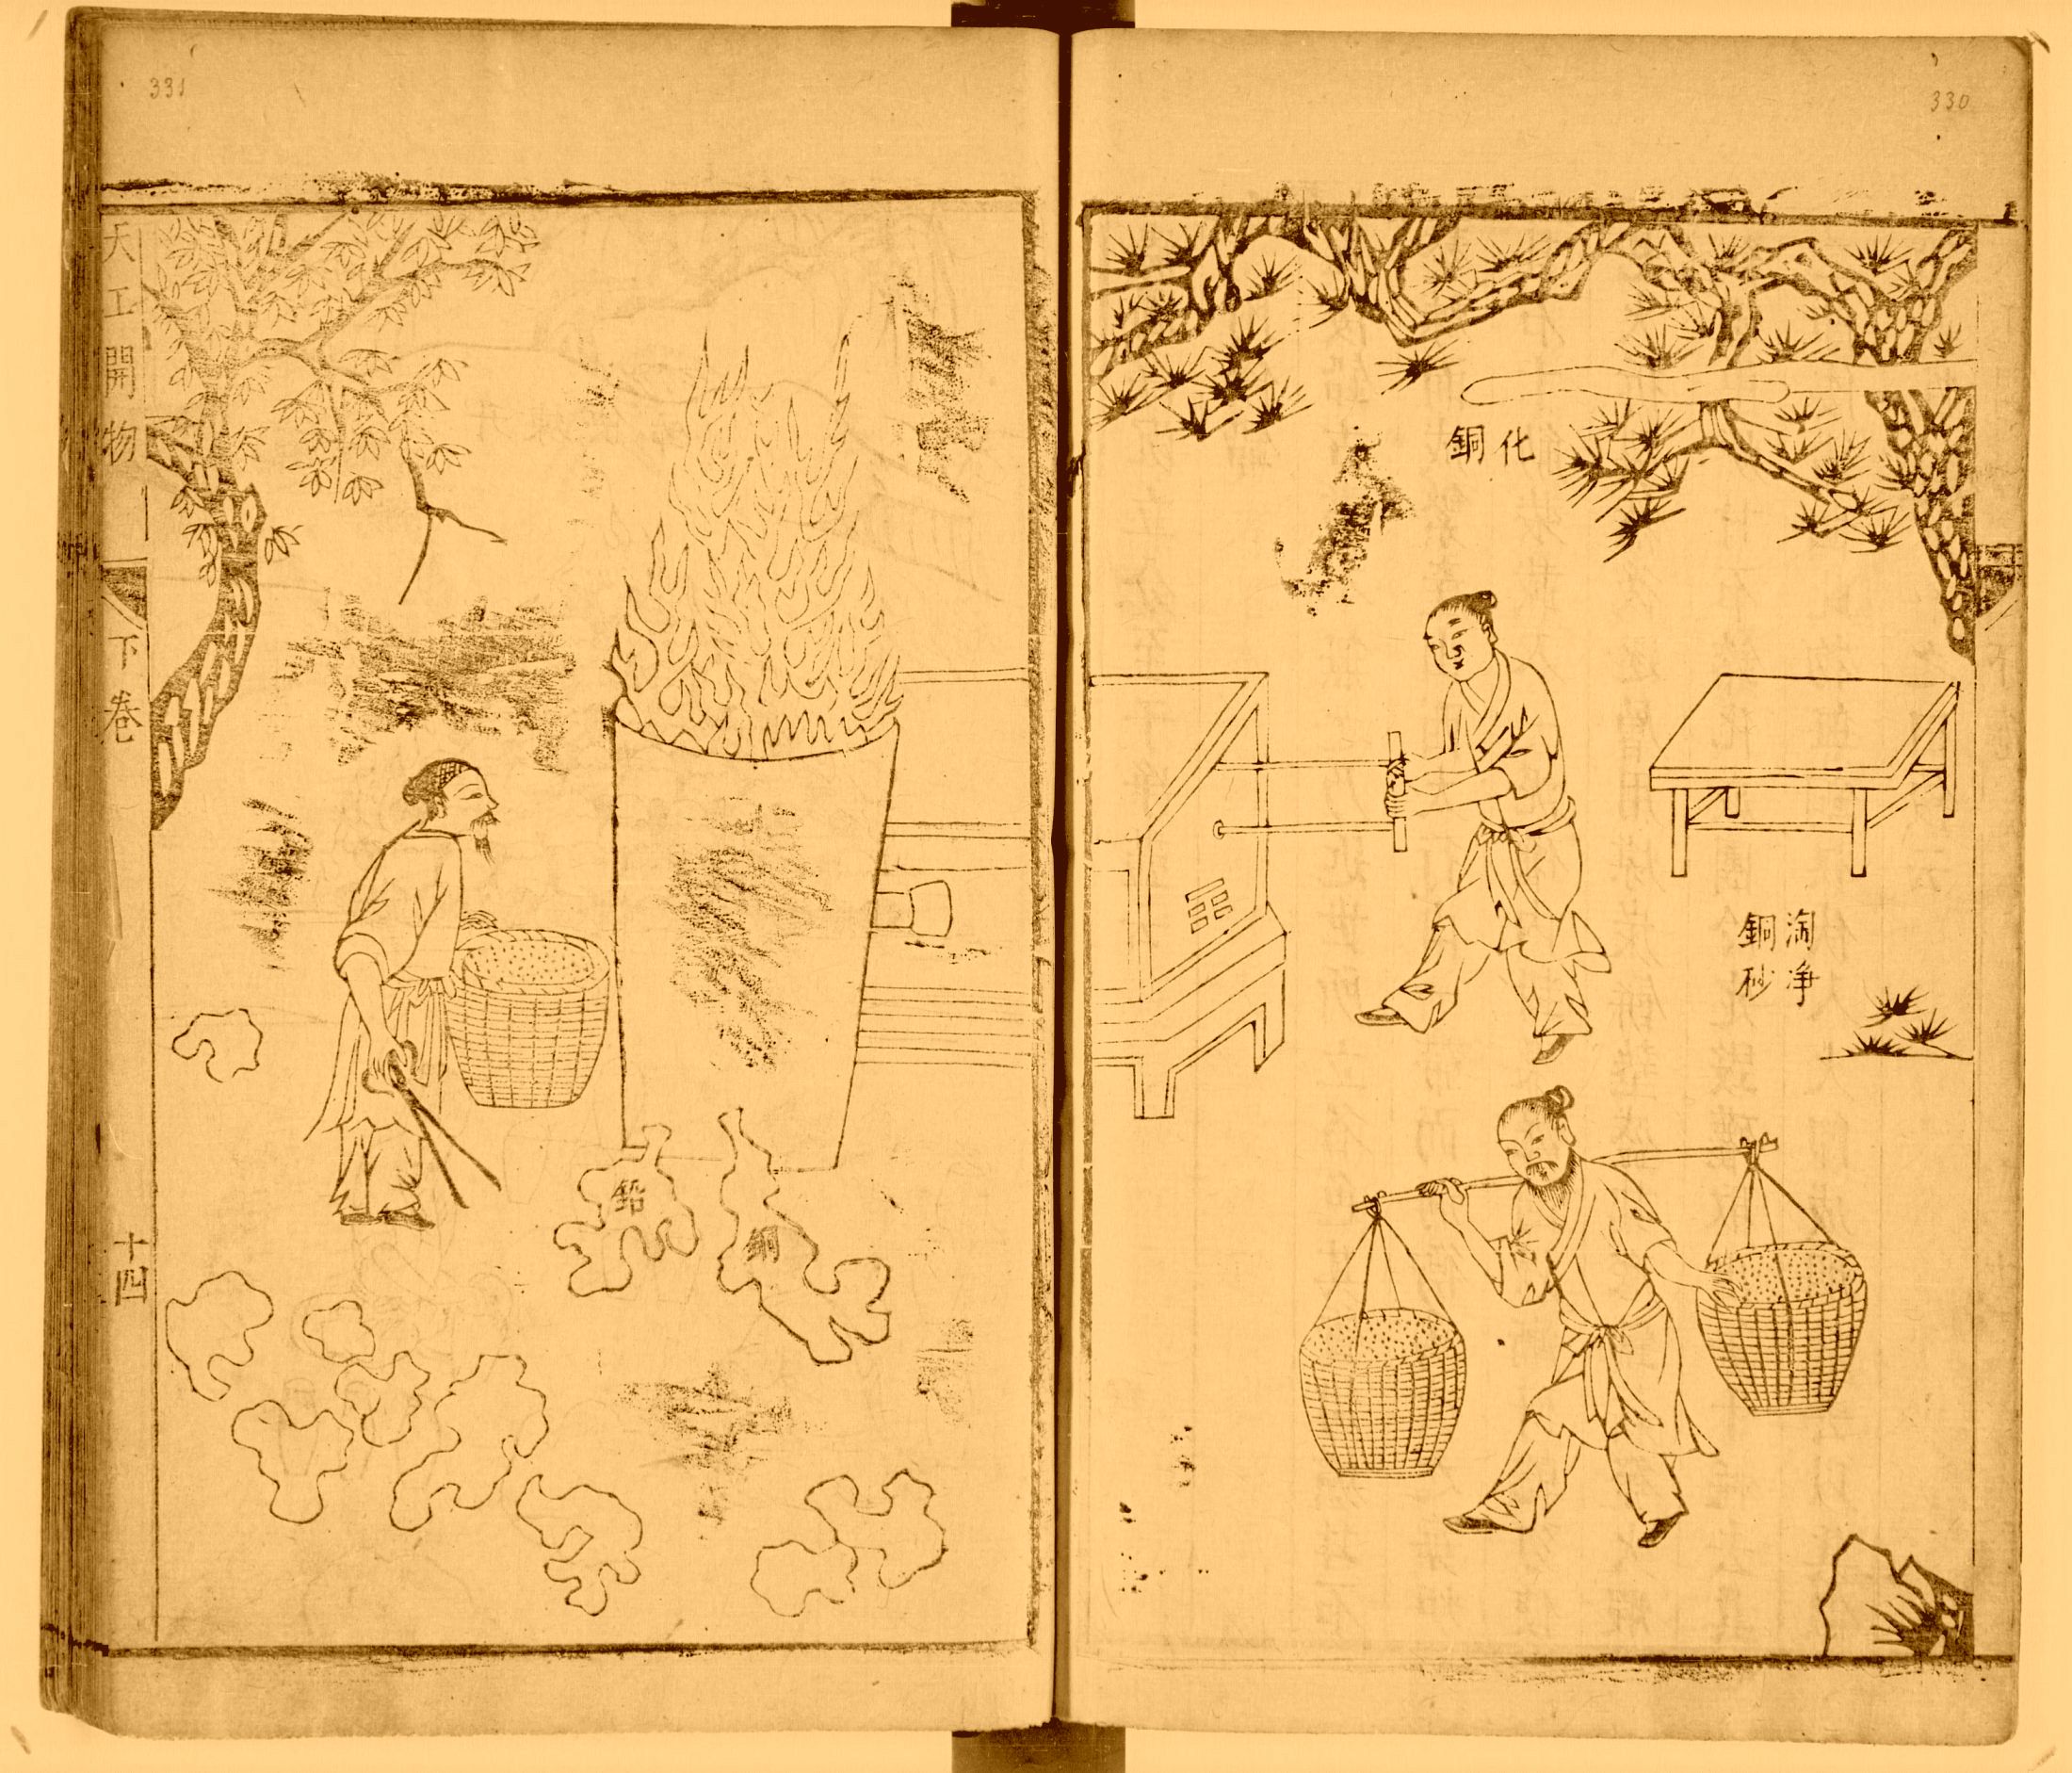 330
化銅
淘净
銅砂
331
鉛
銅
天工開物
下卷
十四